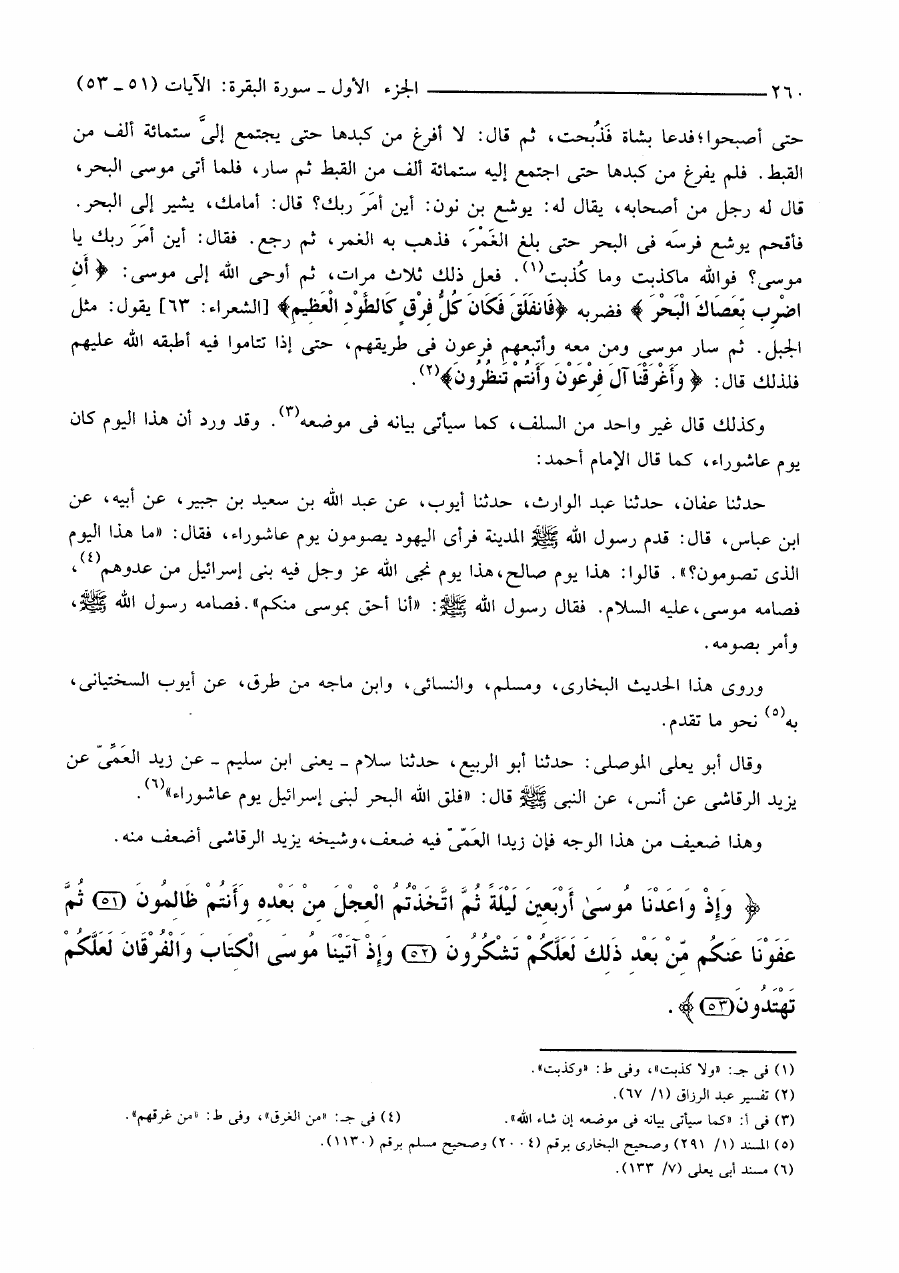 ٢٦٠ ـــــ الجزء الأول ـ سورة البقرة: الآيات (٥١ ـ ٥٣)
حتى أصبحوا؛فدعا بشاة فَذُبحت، ثم قال: لا أفرغ من كبدها حتى يجتمع إلىَّ ستمائة ألف من
القبط. فلم يفرغ من كبدها حتى اجتمع إليه ستمائة ألف من القبط ثم سار، فلما أتى موسى البحر،
قال له رجل من أصحابه، يقال له: يوشع بن نون: أين أمَرَ ربك؟ قال: أمامك، يشير إلى البحر.
فأقحم يوشع فرسَه فى البحر حتى بلغ الغَمْرَ، فذهب به الغمر، ثم رجع. فقال: أين أمَرَ ربك يا
موسى؟ فوالله ماكذبت وما كُذبت(١). فعل ذلك ثلاث مرات، ثم أوحى الله إلى موسى: ﴿ أَنِ
اضْرِب بِّعَصَاكَ الْبَحْرَ ﴾ فضربه ﴿فَانفَلَقَ فَكَانَ كُلُّ فِرْقٍ كَالطَّوْدِ الْعَظِيمِ﴾ [الشعراء: ٦٣] يقول: مثل
الجبل. ثم سار موسى ومن معه وأتبعهم فرعون فى طريقهم، حتى إذا تتاموا فيه أطبقه الله عليهم
فلذلك قال: ﴿ وَأَغْرَقْنَا آلَ فِرْعَوْنَ وَأَنتُمْ تَنظُرُونَ﴾(٢).
وكذلك قال غير واحد من السلف، كما سيأتى بيانه فى موضعه(٣). وقد ورد أن هذا اليوم كان
يوم عاشوراء، كما قال الإمام أحمد:
حدثنا عفان، حدثنا عبد الوارث، حدثنا أيوب، عن عبد الله بن سعيد بن جبير، عن أبيه، عن
ابن عباس، قال: قدم رسول الله ﷺ المدينة فرأى اليهود يصومون يوم عاشوراء، فقال: «ما هذا اليوم
الذى تصومون؟». قالوا: هذا يوم صالح،هذا يوم نجى الله عز وجل فيه بنى إسرائيل من عدوهم(٤)،
فصامه موسى،عليه السلام. فقال رسول الله ﷺ: «أنا أحق بموسى منكم».فصامه رسول الله ﷺ،
وأمر بصومه.
وروى هذا الحديث البخارى، ومسلم، والنسائى، وابن ماجه من طرق، عن أيوب السختيانى،
به(٥) نحو ما تقدم.
وقال أبو يعلى الموصلى: حدثنا أبو الربيع، حدثنا سلام ـ يعنى ابن سليم ـ عن زيد العَمِّىّ عن
يزيد الرقاشى عن أنس، عن النبى ﷺ قال: «فلق الله البحر لبنى إسرائيل يوم عاشوراء»(٦).
وهذا ضعيف من هذا الوجه فإن زيدا العَمّىّ فيه ضعف،وشيخه يزيد الرقاشى أضعف منه.
﴿ وَإِذْ وَاعَدْنَا مُوسَىٰ أَرْبَعِينَ لَيْلَةً ثُمَّ اتَّخَذْتُمُ الْعِجْلَ مِنْ بَعْدِهِ وَأَنتُمْ ظَالِمُونَ (٥١) ثُمَّ
عَفَوْنَا عَنكُم مِّنْ بَعْدِ ذَلِكَ لَعَلَّكُمْ تَشْكُرُونَ (٥٢) وَإِذْ آتَيْنَا مُوسَى الْكِتَابَ وَالْفُرْقَانَ لَعَلَّكُمْ
تَهْتَدُونَ(٥٣)﴾.
(١) فى جـ: «ولا كذبت»، وفى ط: «وكذبت».
(٢) تفسير عبد الرزاق (١/ ٦٧).
(٣) فى أ: «كما سيأتى بيانه فى موضعه إن شاء الله». (٤) فى جـ: «من الغرق»، وفى ط: «من غرقهم».
(٥) المسند (١/ ٢٩١) وصحيح البخارى برقم (٢٠٠٤) وصحيح مسلم برقم (١١٣٠).
(٦) مسند أبى يعلى (٧/ ١٣٣).